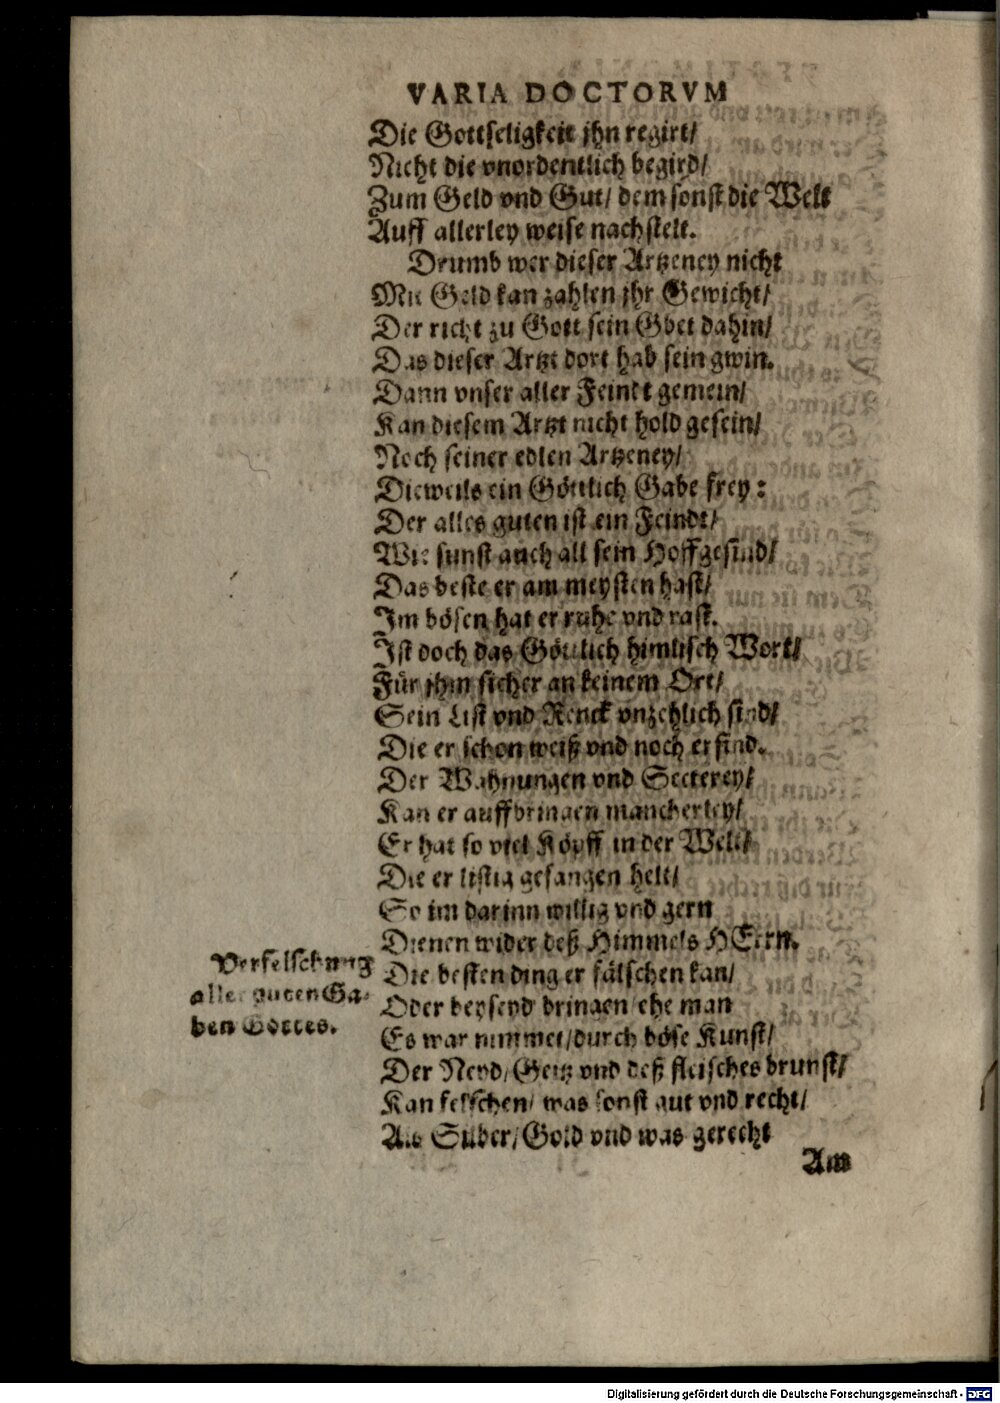 VARIA DOCTORVM
Die Gottseligkeit jhn regirt/
Nicht die vnordentlich begird/
Zum Geld vnd Gut/ dem sonst die Welt
Auff allerley weise nachstelt.
Drumb wer dieser Artzeney nicht
Mit Geld kan zahlen jhr Gewicht/
Der richt zu Gott sein Gbet dahin/
Das dieser Artzt dort hab sein gwin.
Dann vnser aller Feindt gemein/
Kan diesem Artzt nicht hold gesein/
Noch seiner edlen Artzeney/
Dieweils ein Göttlich Gabe frey:
Der alles guten ist ein Feindt/
Wie sunst auch all sein Hoffgesind/
Das beste er am meysten hast/
Im bösen hat er ruhe vnd rast.
Ist doch das Göttlich himlisch Wort/
Für jhm sicher an keinem Ort/
Sein List vnd Renck vnzehlich sind/
Die er schon weiß vnd noch erfind.
Der Wahnungen vnd Secterey/
Kan er auffbringen mancherley/
Er hat so viel Köpff in der Welt/
Die er listig gefangen helt/
So im darinn willig vnd gern
Dienen wider deß Himmels HErrn.
Verfelschung
aller guten Ga-
ben Gottes.
Die besten ding er fälschen kan/
Oder beyseyd bringen ehe man
Es war nimmet/durch böse Kunst/
Der Neyd/Geitz vnd deß fleisches brunst/
Kan felschen/ was sonst gut vnd recht/
Als Silber/Gold vnd was gerecht
Am
Digitalisierung gefördert durch die Deutsche Forschungsgemeinschaft - DFG